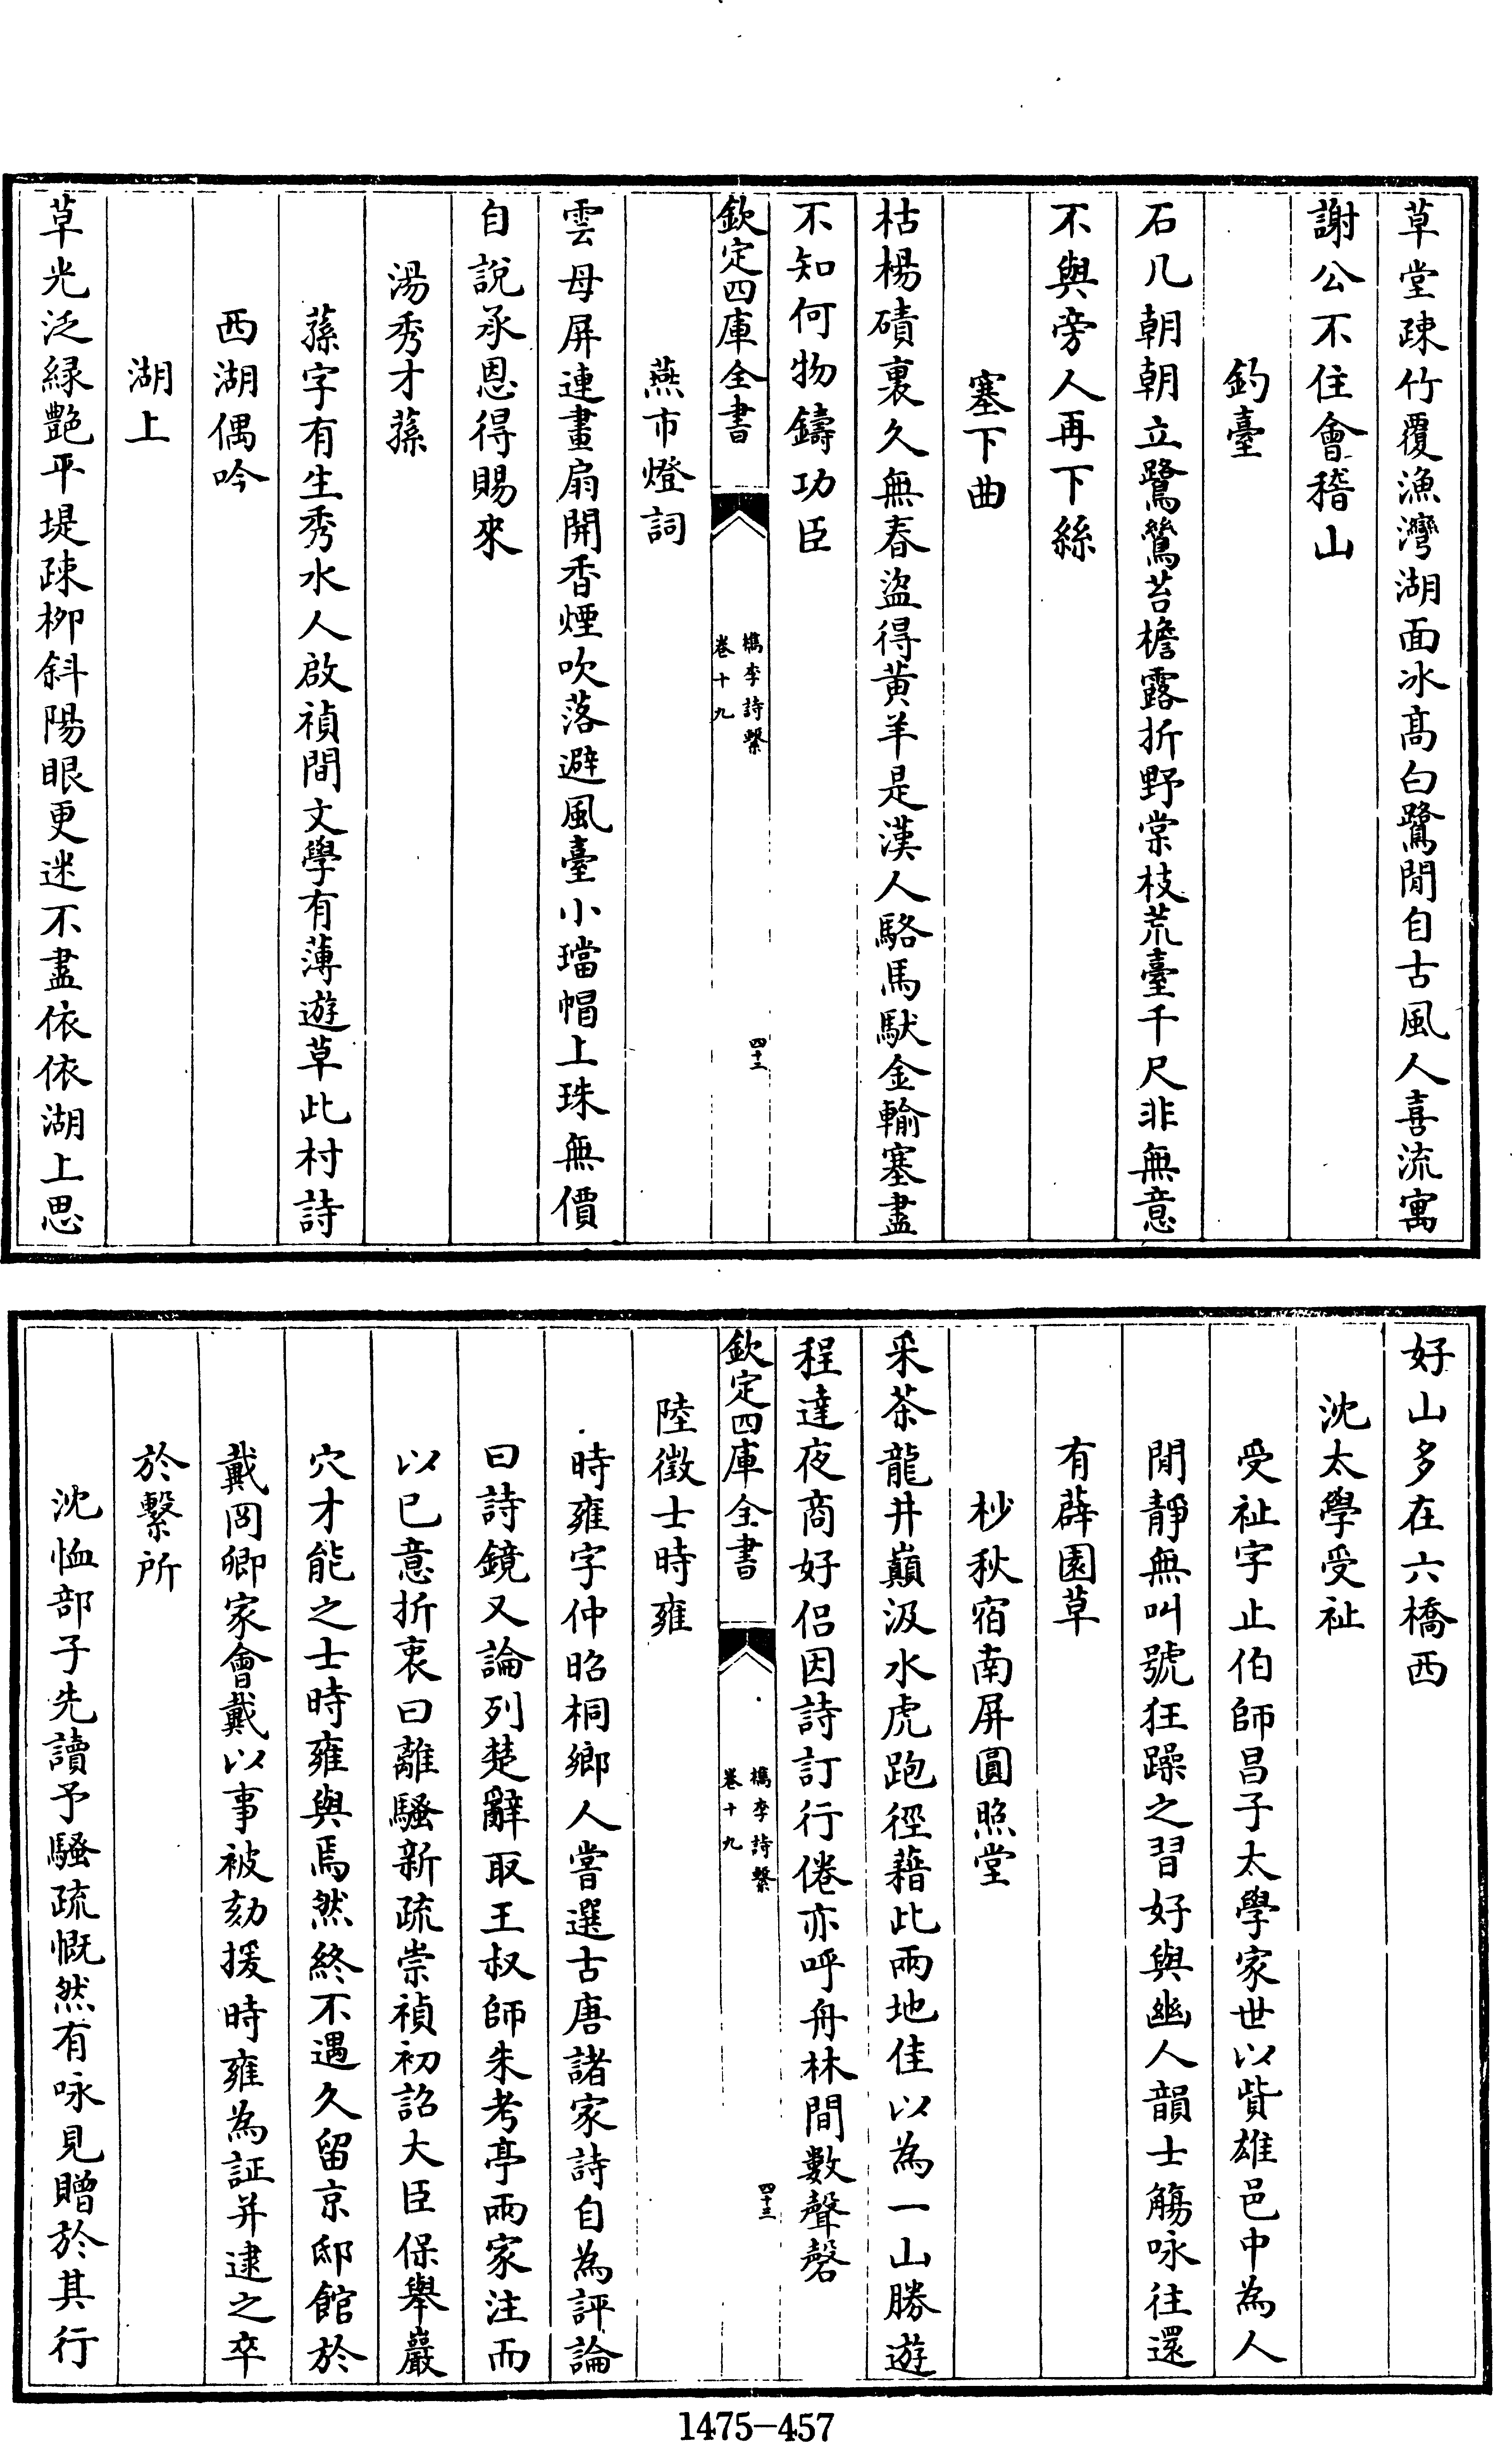 草堂疎竹覆漁灣湖面冰髙白鷺閒自古風人喜流寓
謝公不住會稽山
釣臺
石几朝朝立鷺鷥苔檐露折野棠枝荒臺千尺非無意
不與旁人再下絲
塞下曲
枯楊磧裏久無春盜得黄羊是漢人駱馬馱金輸塞盡
不知何物鑄功臣
欽定四庫全書
檇李詩繫
卷十九
四十二
燕市燈詞
雲母屏連畫扇開香煙吹落避風臺小璫帽上珠無價
自說承恩得賜來
湯秀才蓀
蓀字有生秀水人啟禎間文學有薄遊草此村詩
西湖偶吟
湖上
草光泛緑艶平堤疎栁斜陽眼更迷不盡依依湖上思
好山多在六橋西
沈太學受祉
受祉字止伯師昌子太學家世以貲雄邑中為人
閒靜無叫號狂躁之習好與幽人韻士觴咏往還
有薜園草
杪秋宿南屏圓照堂
采茶龍井巔汲水虎跑徑藉此兩地佳以為一山勝遊
程達夜商好侣因詩訂行倦亦呼舟林間數聲磬
欽定四庫全書
檇李詩繫
卷十九
四十三
陸徵士時雍
時雍字仲昭桐鄉人嘗選古唐諸家詩自為評論
曰詩鏡又論列楚辭取王叔師朱考亭兩家注而
以已意折衷曰離騷新疏崇禎初詔大臣保舉巖
穴才能之士時雍與焉然終不遇久留京邸館於
戴岡卿家會戴以事被劾援時雍為証并逮之卒
於繫所
沈恤部子先讀予騷疏慨然有咏見贈於其行
1475-457